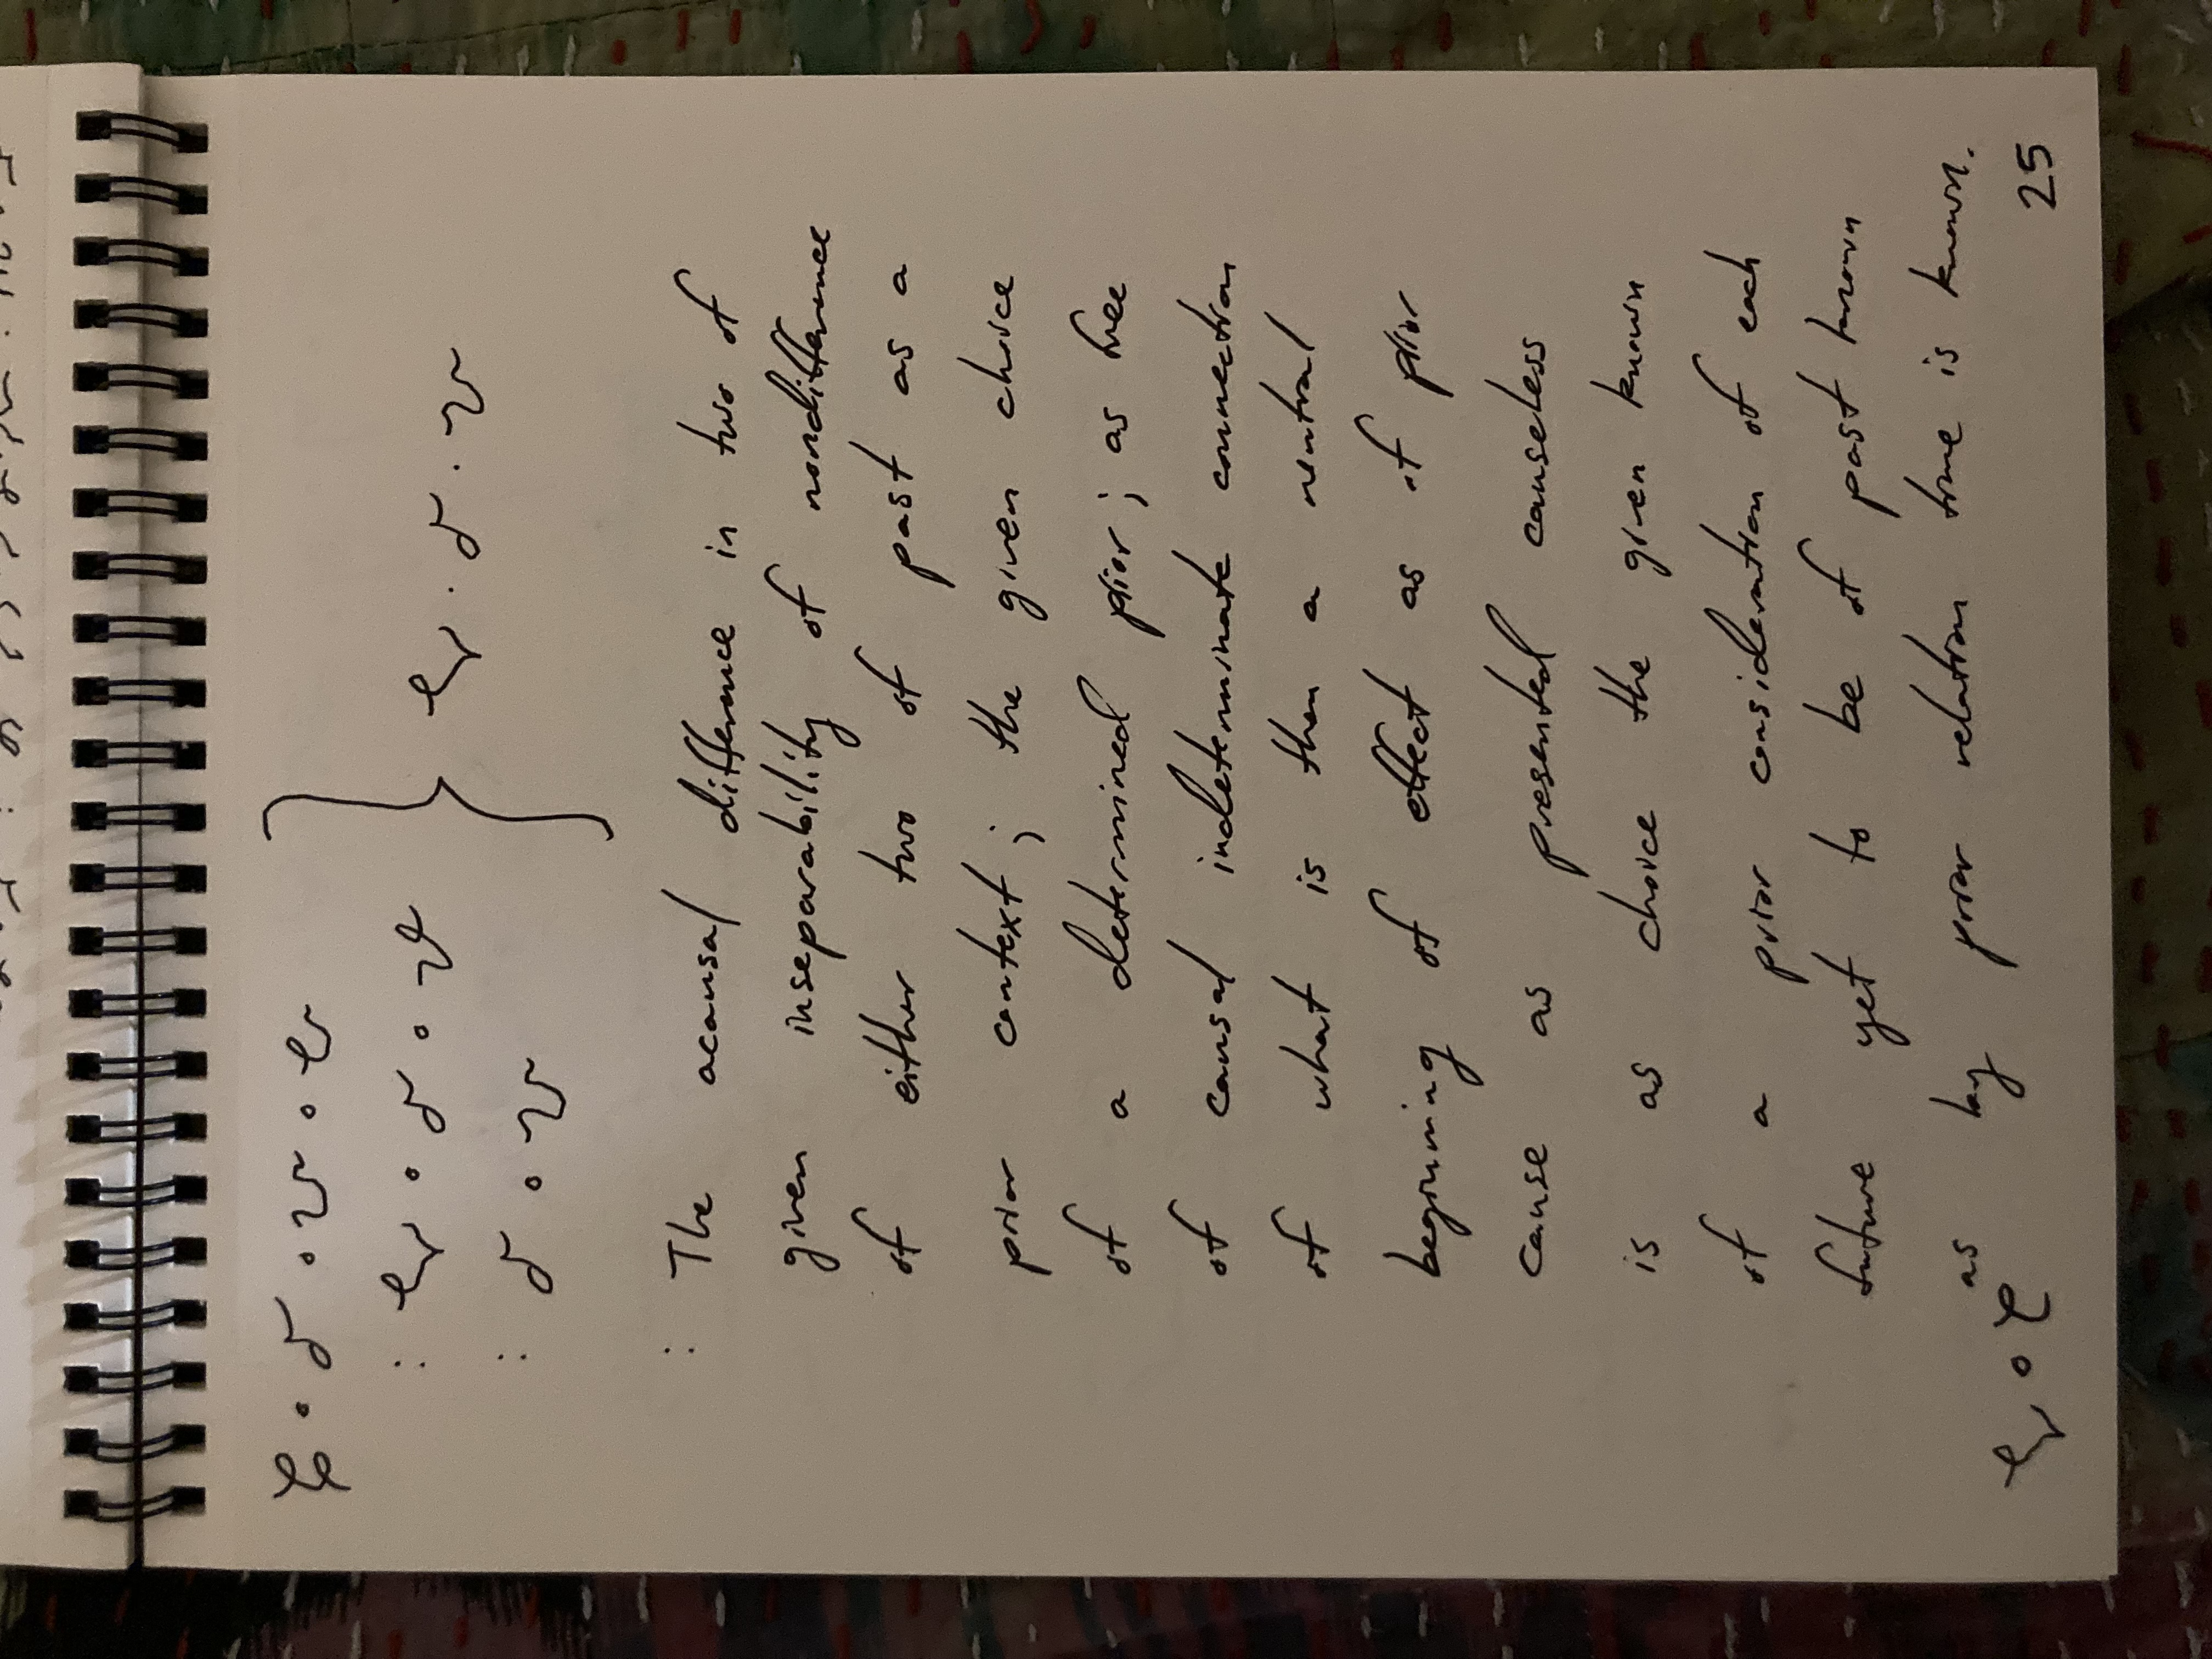 : The acausal difference in two of
given inseparability of nondifference
of either two of past as a
prior context; the given choice
of a determined prior; as free
of causal indeterminate connection
of what is then a neutral
beginning of effect as of prior
cause as presented causeless
is as choice the given known
of a prior consideration of each
future yet to be of past known
as by prior relation time is known.
25